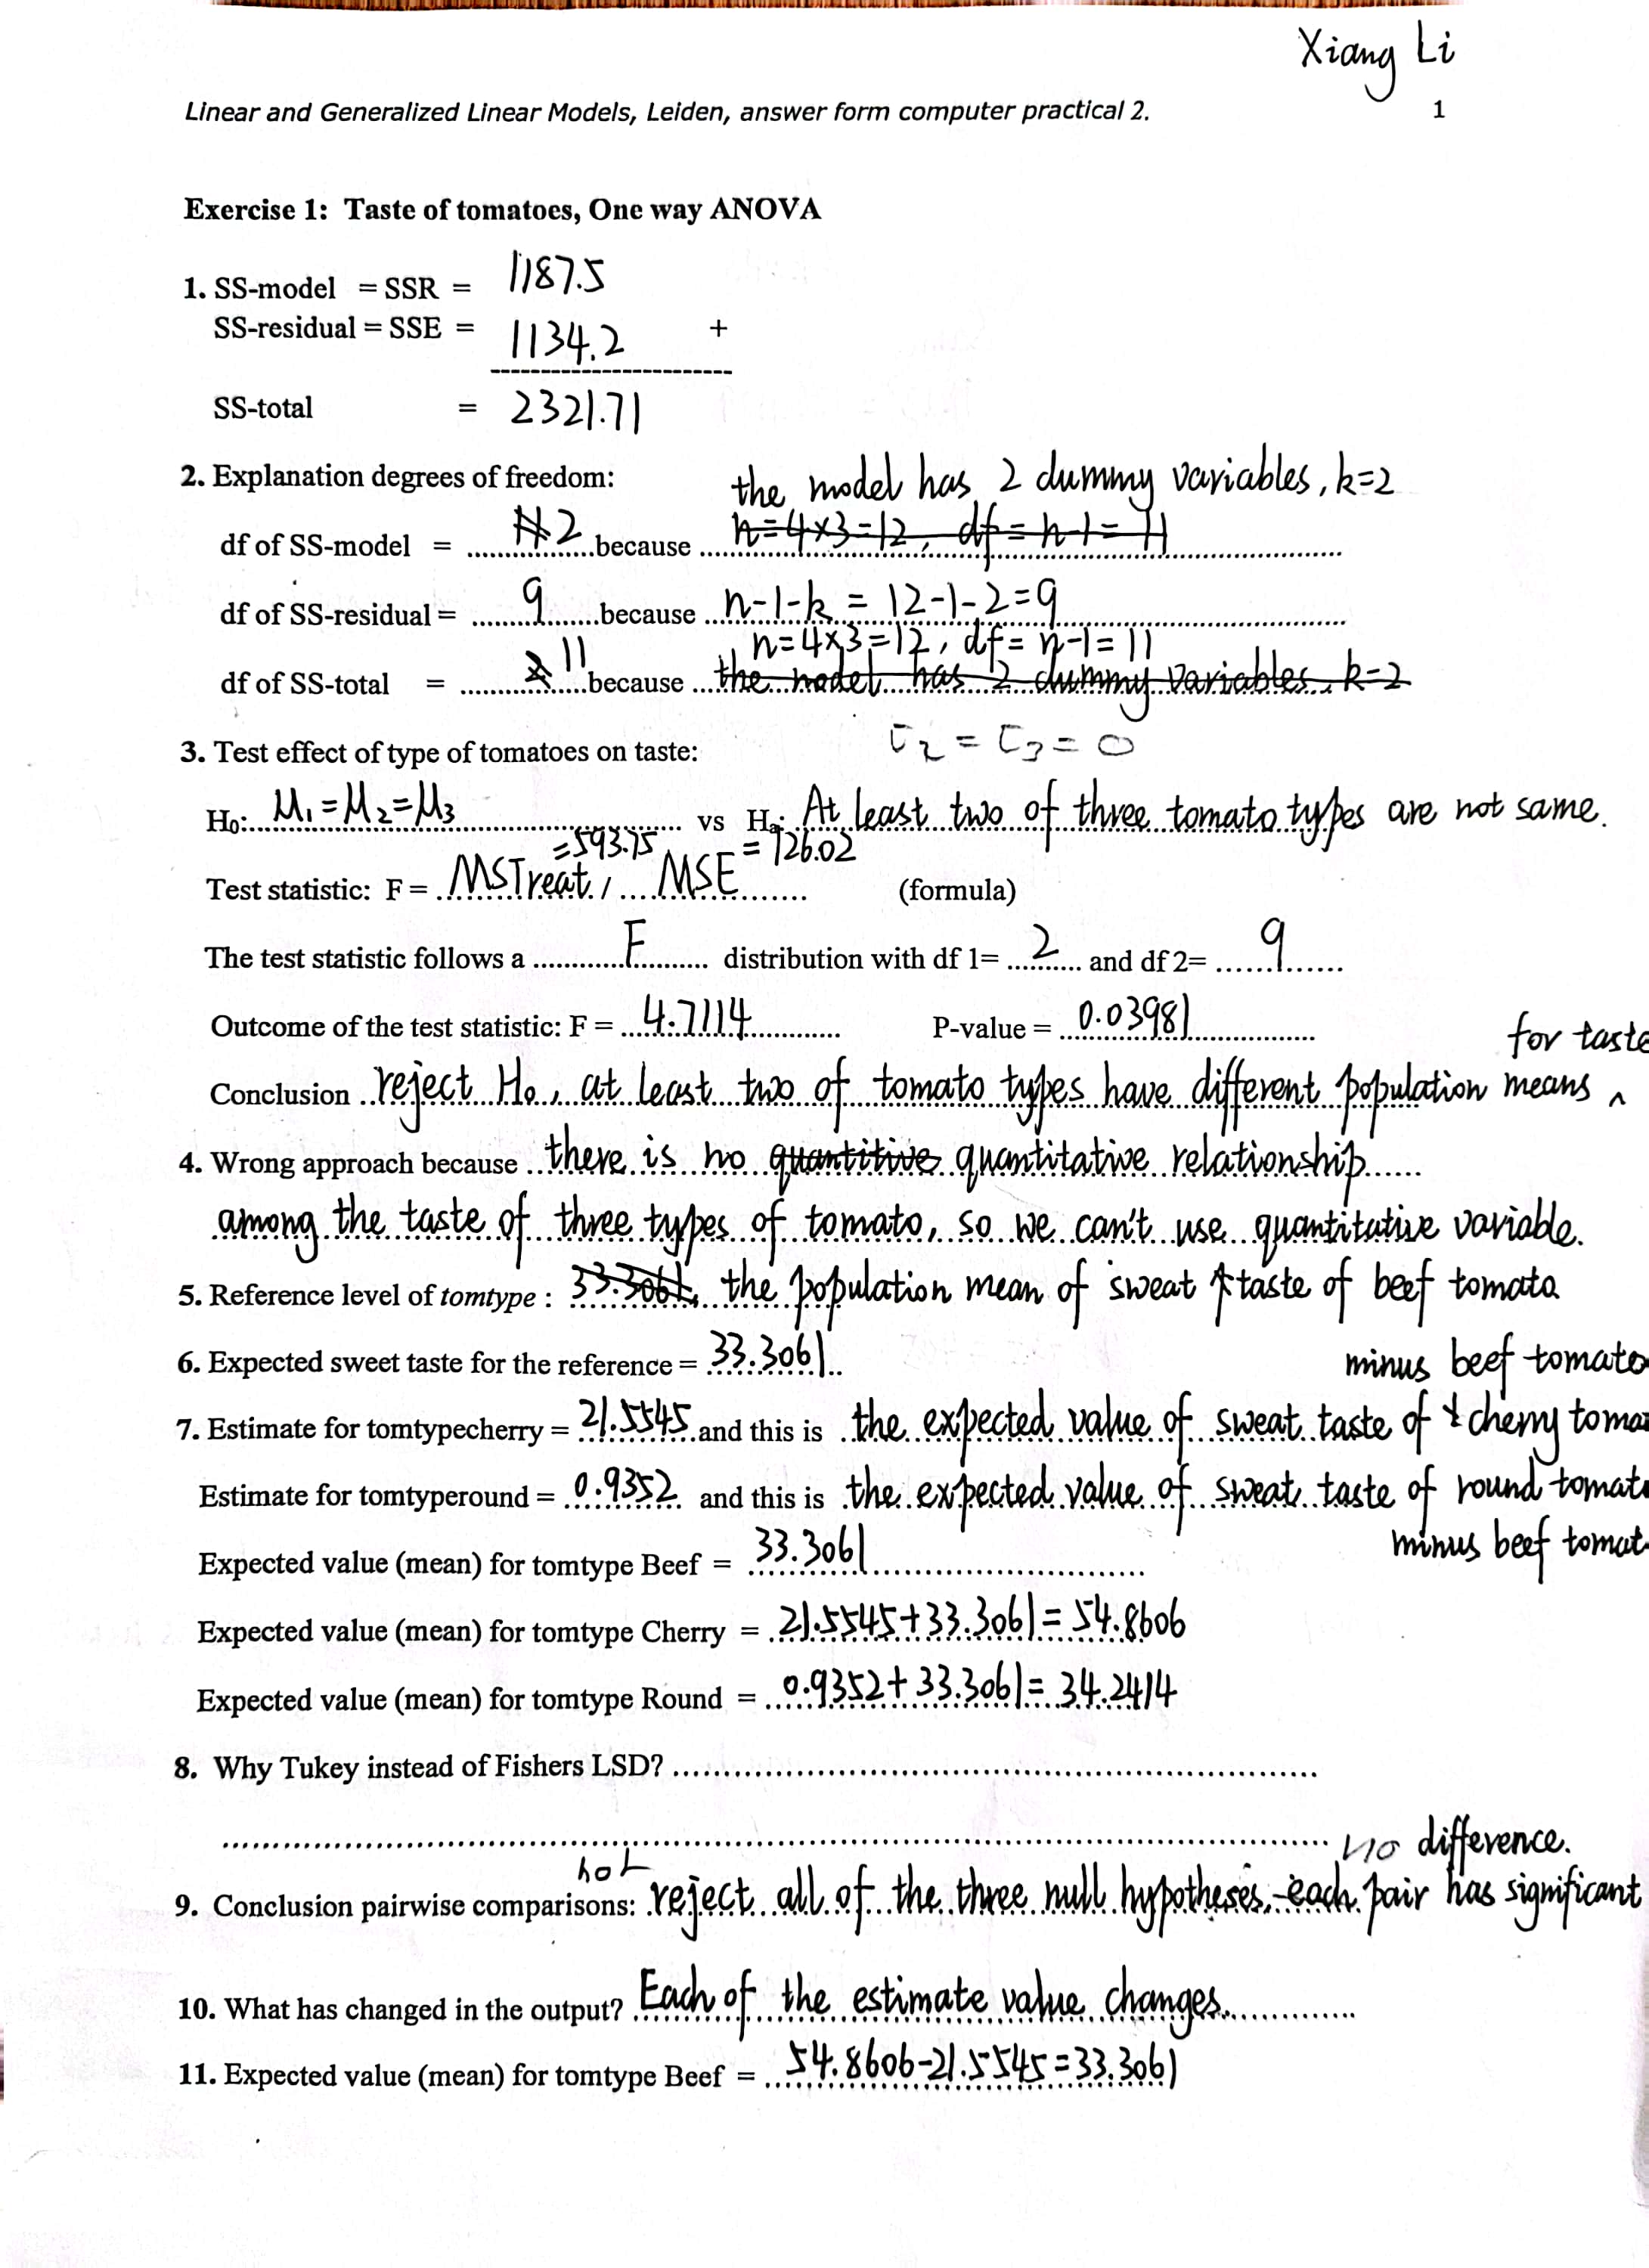 Xiang Li
Linear and Generalized Linear Models, Leiden, answer form computer practical 2. 1
Exercise 1: Taste of tomatoes, One way ANOVA
1. SS-model = SSR = 1187.5
SS-residual = SSE = 1134.2 +
SS-total = 2321.71
2. Explanation degrees of freedom: the model has 2 dummy variables, k=2
df of SS-model = 2 because n=4×3=12, df=n-1=11
df of SS-residual = 9 because n-1-k = 12-1-2=9
n=4×3=12, df=n-1=11
df of SS-total = 11 because the model has 2 dummy variables, k=2
3. Test effect of type of tomatoes on taste: τ2 = τ3 = 0
H0: μ1=μ2=μ3 vs Ha: At least two of three tomato types are not same.
=593.75 =126.02
Test statistic: F = MSTreat / MSE (formula)
The test statistic follows a F distribution with df 1= 2 and df 2= 9
Outcome of the test statistic: F = 4.7114 P-value = 0.03981
for taste
Conclusion reject H0, at least two of tomato types have different population means ^
4. Wrong approach because there is no quantitive quantitative relationship
among the taste of three types of tomato, so we can't use quantitative variable.
5. Reference level of tomtype : 33.3061, the population mean of sweat taste of beef tomato
6. Expected sweet taste for the reference = 33.3061
minus beef tomato
7. Estimate for tomtypecherry = 21.5545 and this is the expected value of sweat taste of cherry toma
Estimate for tomtyperound = 0.9352 and this is the expected value of sweat taste of round tomat
minus beef tomat
Expected value (mean) for tomtype Beef = 33.3061
Expected value (mean) for tomtype Cherry = 21.5545+33.3061=54.8606
Expected value (mean) for tomtype Round = 0.9352+33.3061=34.2414
8. Why Tukey instead of Fishers LSD?
no difference.
not
9. Conclusion pairwise comparisons: reject all of the three null hypotheses, each pair has significant
10. What has changed in the output? Each of the estimate value changes.
11. Expected value (mean) for tomtype Beef = 54.8606-21.5545=33.3061